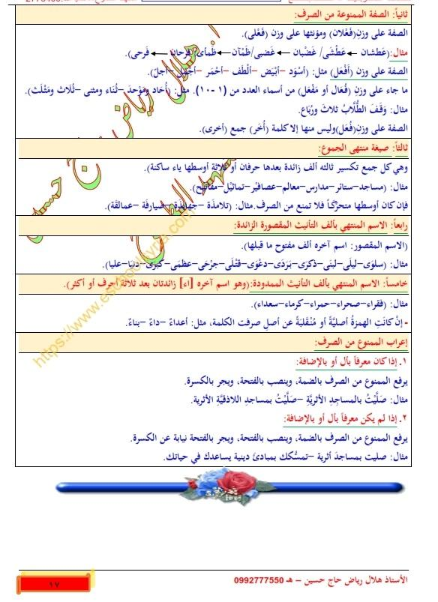 ثانياً: الصفة الممنوعة من الصرف:
الصفة على وزن (فَعْلان) ومؤنثها على وزن (فَعْلى).
مثال: (عَطشان ← عَطْشى/ غَضْبان ← غَضبى/ ظَمْآن ← ظَمأى/ فَرحان ← فَرحى).
الصفة على وزن (أفْعَل) مثل: (أسْوَد – أبْيَض – ألْطَف – أحْمَر – أجْمَل – أجلّ).
ما جاء على وزن (فُعَال أو مَفْعَل) من أسماء العدد من (١-١٠) مثل: (أُحَاد ومَوْحَد – ثُنَاء ومثنى – ثُلَاث ومَثْلَث).
مثال: وَقَفَ الطُّلَّابُ ثلاثَ ورُبَاع.
الصفة على وزن (فُعَل) وليس منها إلا كلمة (أُخَر) جمع (أخرى).
ثالثاً: صيغة منتهى الجموع:
وهي كل جمع تكسير ثالثه ألف زائدة بعدها حرفان أو ثلاثة أوسطها ياء ساكنة.
مثال: (مساجد – ستائر – مدارس – معالم – عصافير – تماثيل – مفاتيح).
فإن كان أوسطها متحركاً فلا تمنع من الصرف. مثال: (تلامذة – جهابذة – صيارفة – عمالقة).
رابعاً: الاسم المنتهي بألف التأنيث المقصورة الزائدة:
(الاسم المقصور: اسم آخره ألف مفتوح ما قبلها).
مثال: (سلوى – ليلى – لبنى – ذكرى – بَرَدَى – دعْوَى – قَتْلَى – جَرْحَى – عظمى – كبرى – دنيا – عليا).
خامساً: الاسم المنتهي بألف التأنيث الممدودة: (وهو اسم آخره [اء] زائدتان بعد ثلاثة أحرف أو أكثر).
مثال: (فقراء – صحراء – حمراء – كرماء – سعداء).
- إنْ كانَتِ الهمزةُ أصليَّةً أو مُنْقَلِبةً عن أصلٍ صرفت الكلمة، مثل: أعداءً – داءً – بناءً.
إعراب الممنوع من الصرف:
١. إذا كان معرفاً بأل أو بالإضافة:
يرفع الممنوع من الصرف بالضمة، وينصب بالفتحة، ويجر بالكسرة.
مثال: صَلَّيْتُ بالمساجدِ الأثريَّةِ – صَلَّيْتُ بمساجدِ اللاذقيَّةِ الأثرية.
٢. إذا لم يكن معرفاً بأل أو بالإضافة:
يرفع الممنوع من الصرف بالضمة، وينصب بالفتحة، ويجر بالفتحة نيابة عن الكسرة.
مثال: صليت بمساجدَ أثرية – تمسُّكك بمبادئَ دينية يساعدك في حياتك.
الأستاذ هلال رياض حاج حسين – هـ 0992777550
١٧